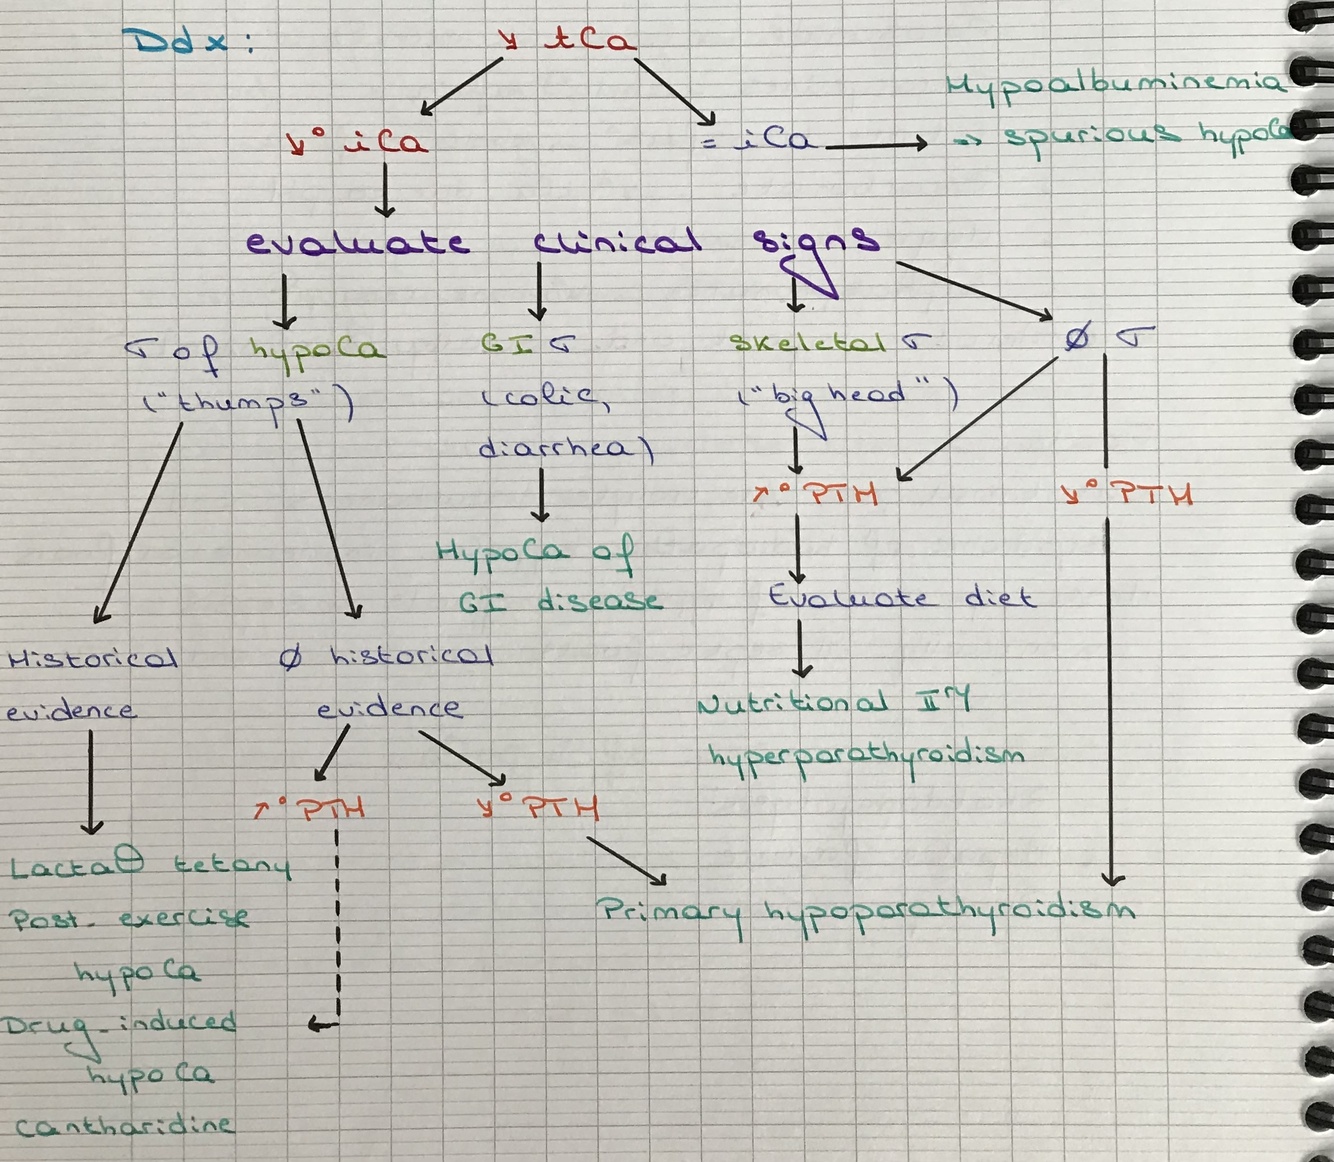 Ddx :
↘ tCa
Hypoalbuminemia
↘° iCa
= iCa
⇒ spurious hypoCa
evaluate clinical signs
σ of hypoCa
GI σ
Skeletal σ
Ø σ
("thumps")
(colic,
("big head")
diarrhea)
↗° PTH
↘° PTH
HypoCa of
GI disease
Evaluate diet
Historical
Ø historical
evidence
evidence
Nutritional IIry
hyperparathyroidism
↗° PTH
↘° PTH
Lactaθ tetany
Post-exercise
hypoCa
Primary hypoparathyroidism
Drug-induced
hypoCa
Cantharidine